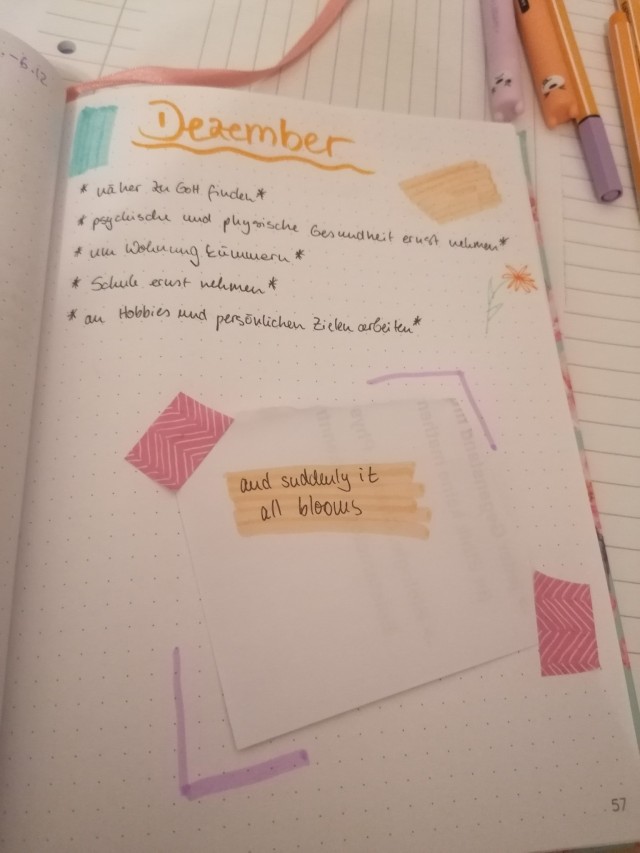 .-6.12
Dezember
* näher zu Gott finden *
* psychische und physische Gesundheit ernst nehmen *
* um Wohnung kümmern *
* Schule ernst nehmen *
* an Hobbies und persönlichen Zielen arbeiten *
and suddenly it
all blooms
57